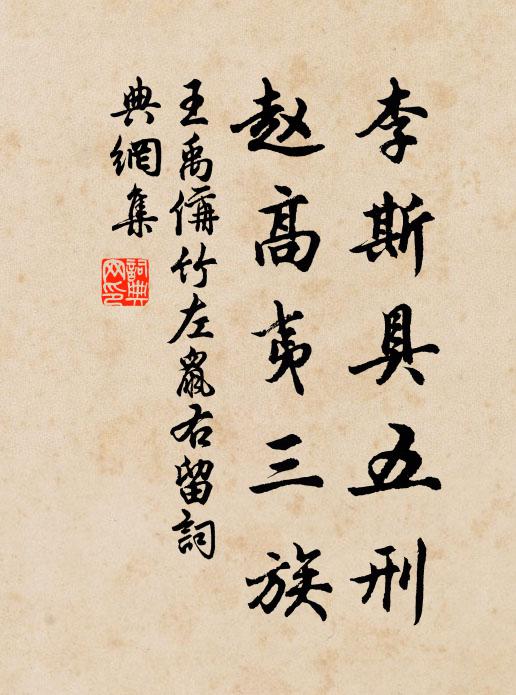 李斯具五刑
赵高夷三族
王禹偁竹左鼠右留詞
典網集
詞典
网印